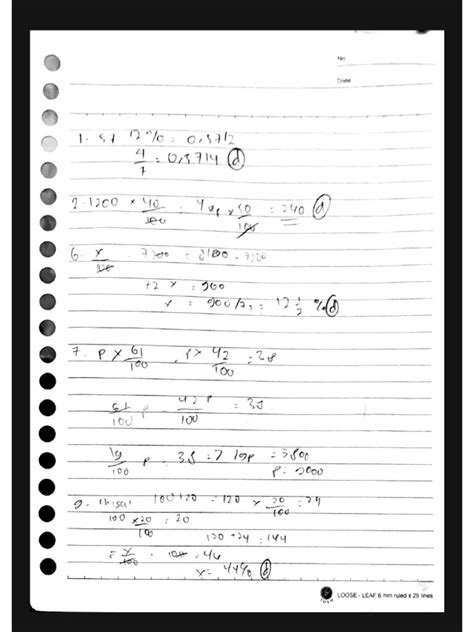 No:
Date:
1. 57 12% = 0,5712
4/7 = 0,5714 (d)
2. 1200 × 40/100 = 480 × 50/100 = 240 (d)
6. x/100 . 7200 = 8100 - 7200
72 x = 900
x = 900/72 = 12 1/2 % (d)
7. P × 61/100 - P × 42/100 = 38
61/100 P - 42 P/100 = 38
19/100 P = 38 = 7 19P = 3800
P = 2000
9. misal 100+20 = 120 × 20/100 = 24
100 × 20/100 = 20
120 + 24 = 144
= x/100 . 100 = 44
x = 44% (d)
LOOSE - LEAF 6 mm ruled x 28 lines